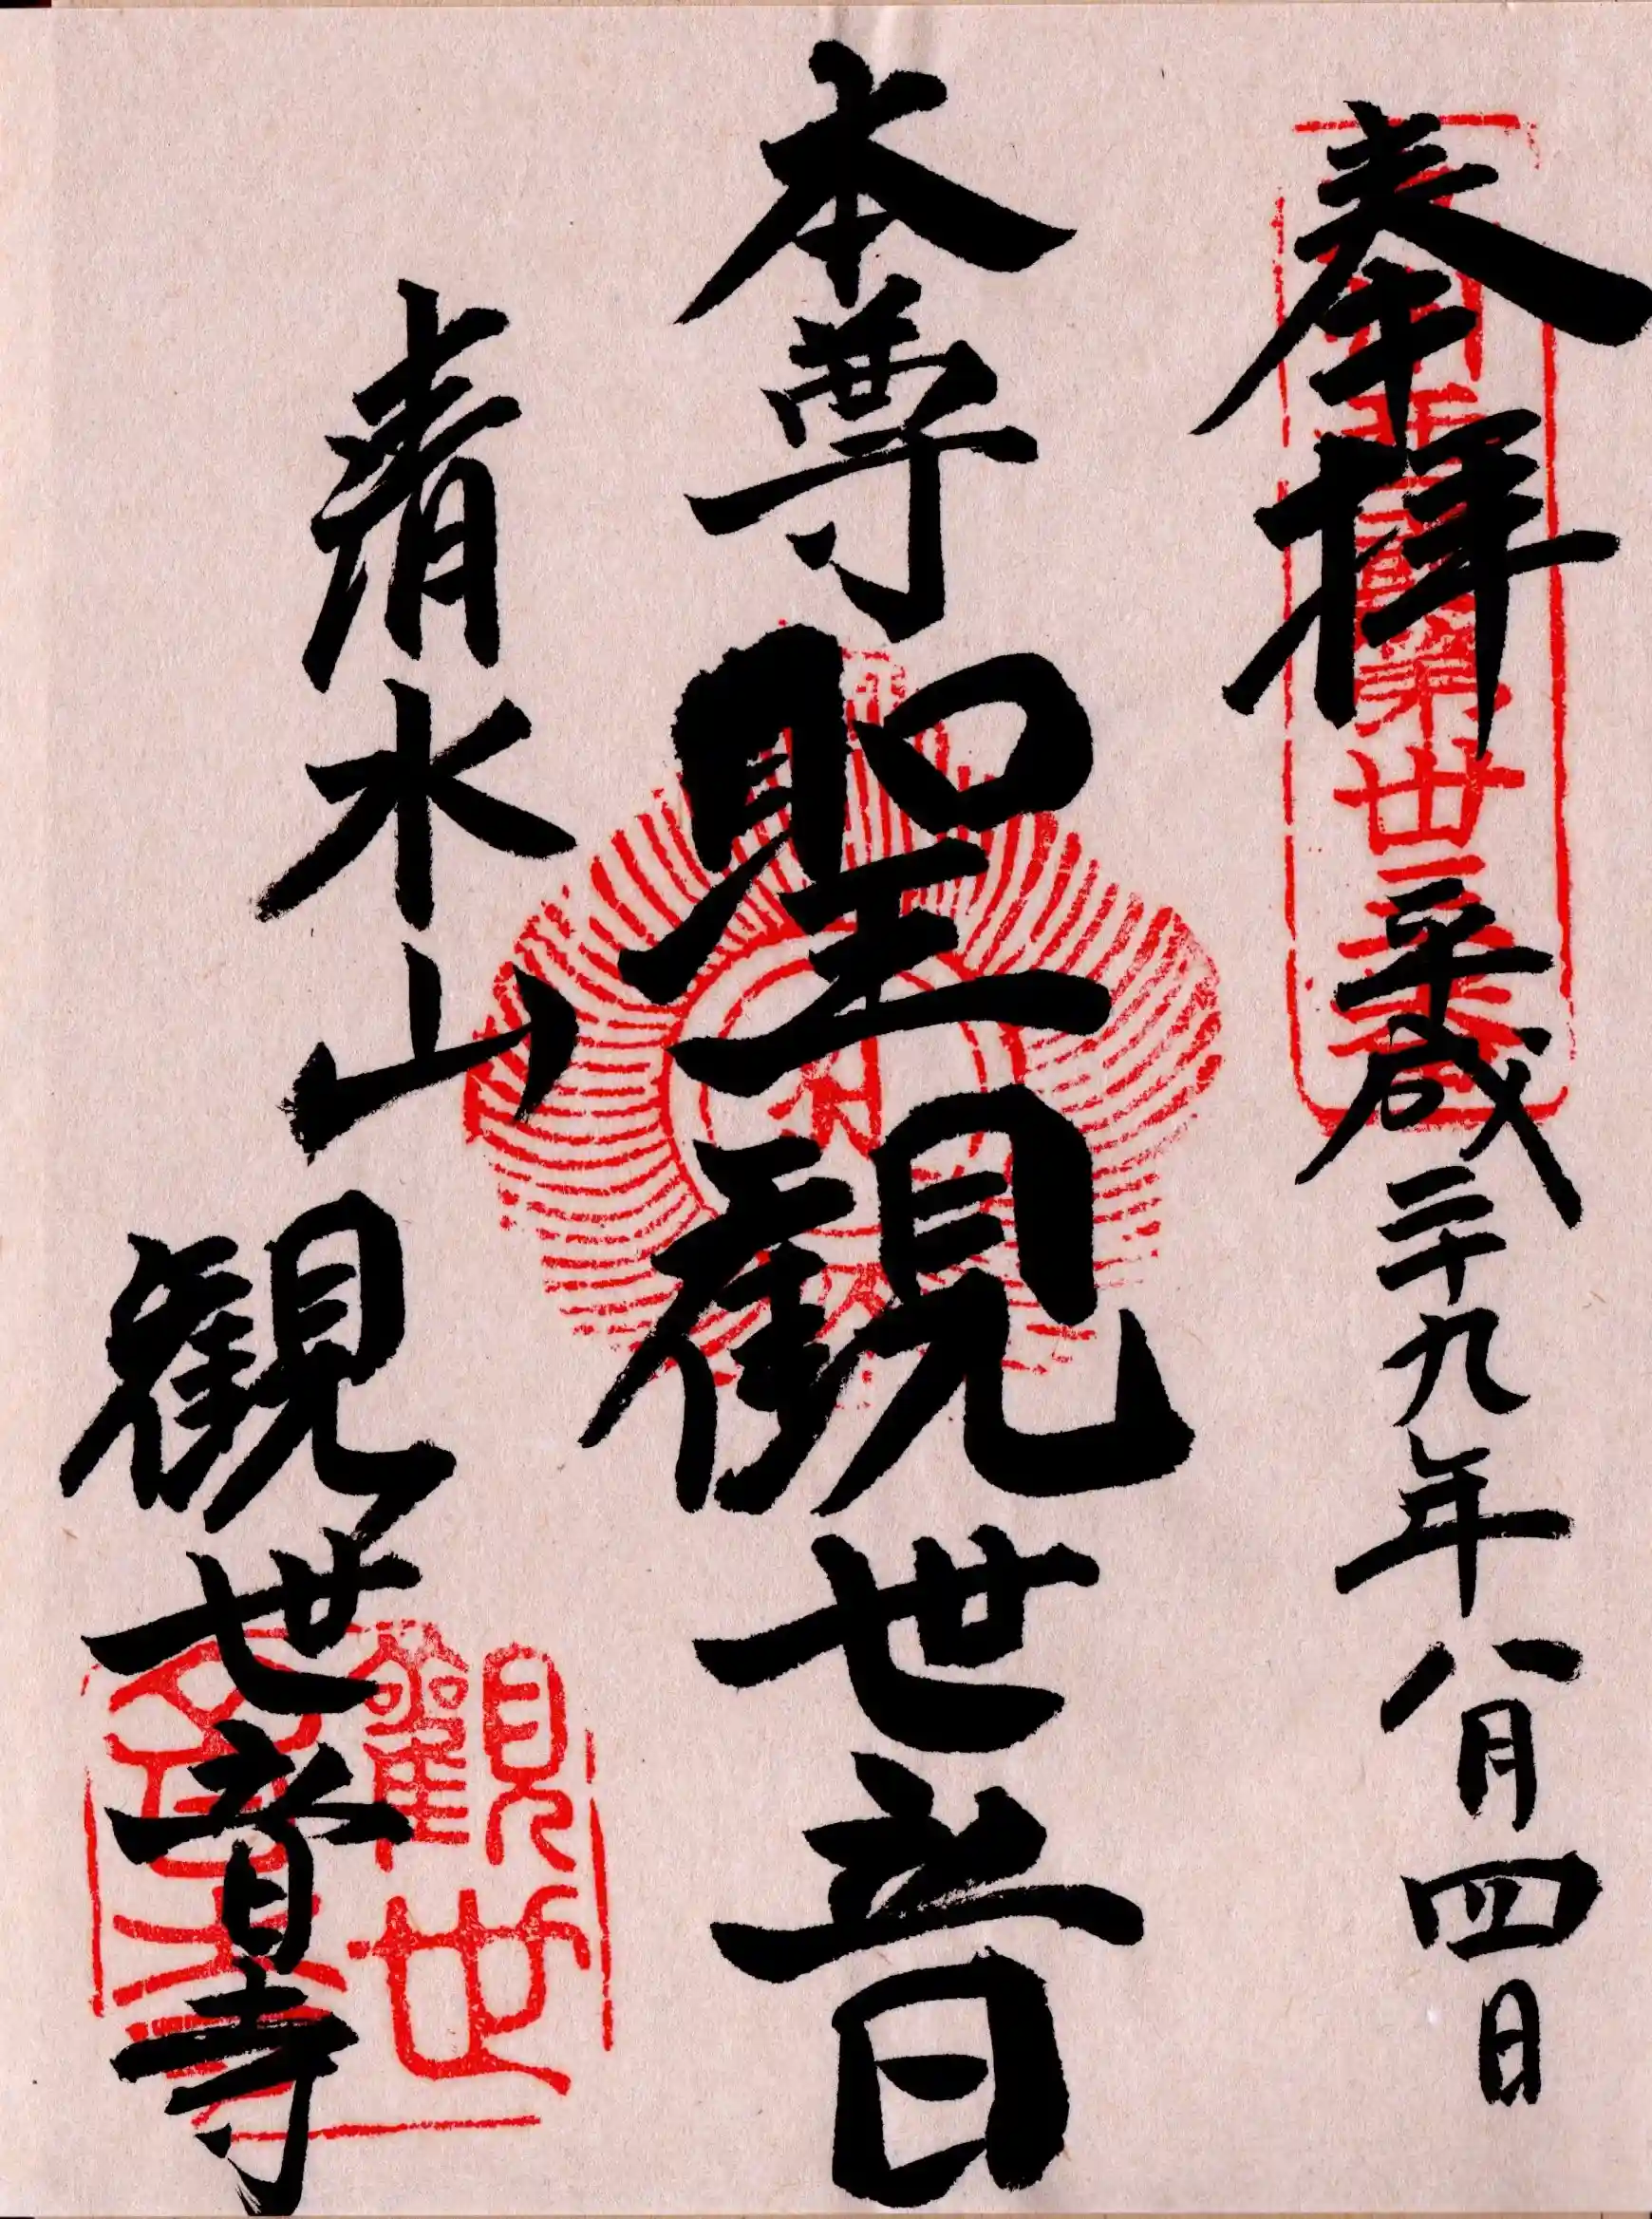 奉拝 平成二十九年八月四日
本尊 聖観世音
清水山 観世音寺
第丗三番
観世音寺